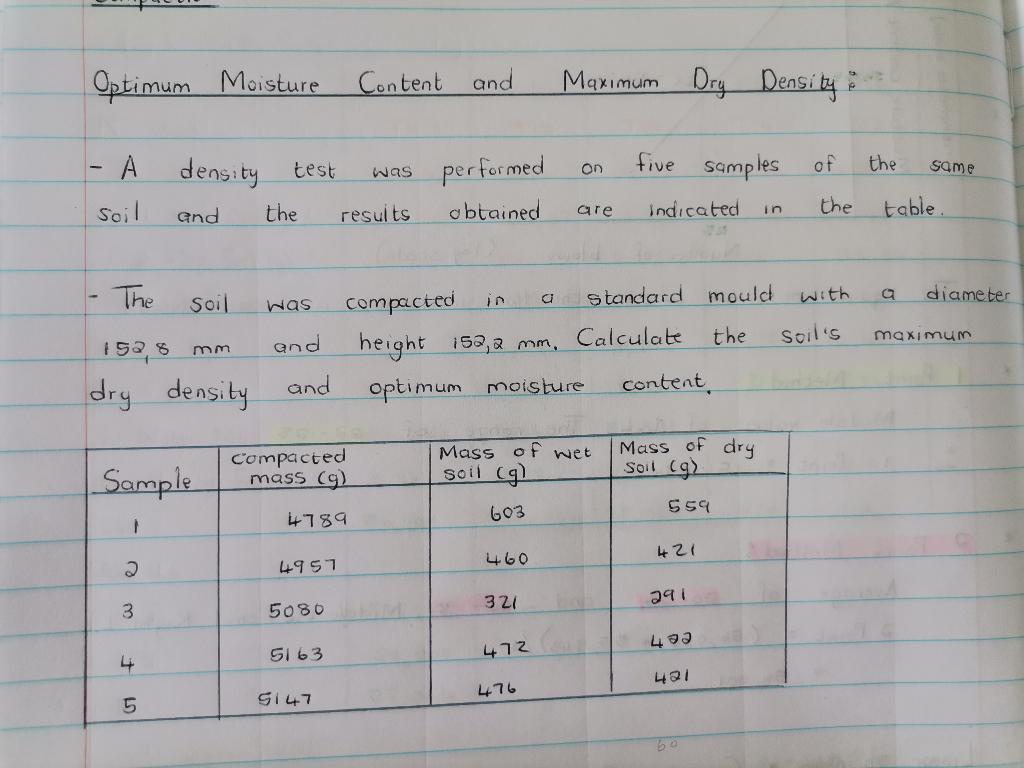 Optimum Moisture Content and Maximum Dry Density :
- A density test was performed on five samples of the same
soil and the results obtained are indicated in the table.
- The soil was compacted in a standard mould with a diameter
152,8 mm and height 152,2 mm. Calculate the soil's maximum
dry density and optimum moisture content.
Sample | Compacted mass (g) | Mass of wet soil (g) | Mass of dry soil (g)
1 | 4789 | 603 | 559
2 | 4957 | 460 | 421
3 | 5080 | 321 | 291
4 | 5163 | 472 | 422
5 | 5147 | 476 | 421